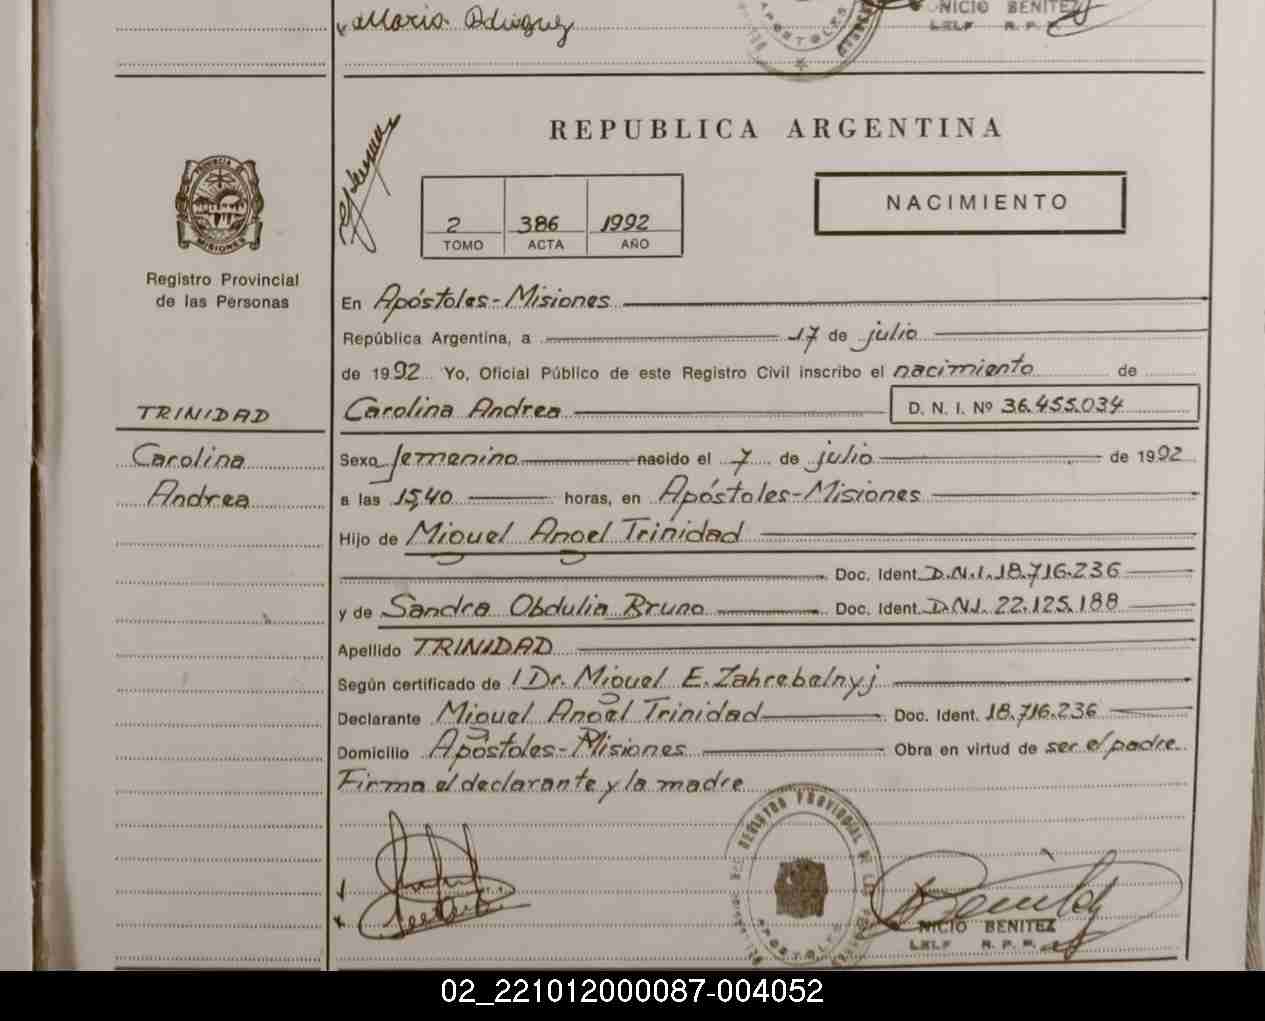 Maria
NICIO BENITEZ
REPUBLICA ARGENTINA
PROVINCIA DE
MISIONES
Registro Provincial
de las Personas
2 386 1992
TOMO ACTA AÑO
NACIMIENTO
En Apóstoles-Misiones
República Argentina, a 17 de julio
de 1992 Yo, Oficial Público de este Registro Civil inscribo el nacimiento de
TRINIDAD
Carolina
Andrea
Carolina Andrea D. N. I. Nº 36.455.034
Sexo femenino nacido el 7 de julio de 1992
a las 15,40 horas, en Apóstoles-Misiones
Hijo de Miguel Angel Trinidad
Doc. Ident. D.N.I. 18.716.236
y de Sandra Obdulia Bruno Doc. Ident. D.N.I. 22.125.188
Apellido TRINIDAD
Según certificado de Dr. Miguel E. Zahrebelnyj
Declarante Miguel Angel Trinidad Doc. Ident. 18.716.236
Domicilio Apóstoles-Misiones Obra en virtud de ser el padre
Firma el declarante y la madre
REGISTRO PROVINCIAL DE LAS
APOSTOLES
NICIO BENITEZ
02_221012000087-004052